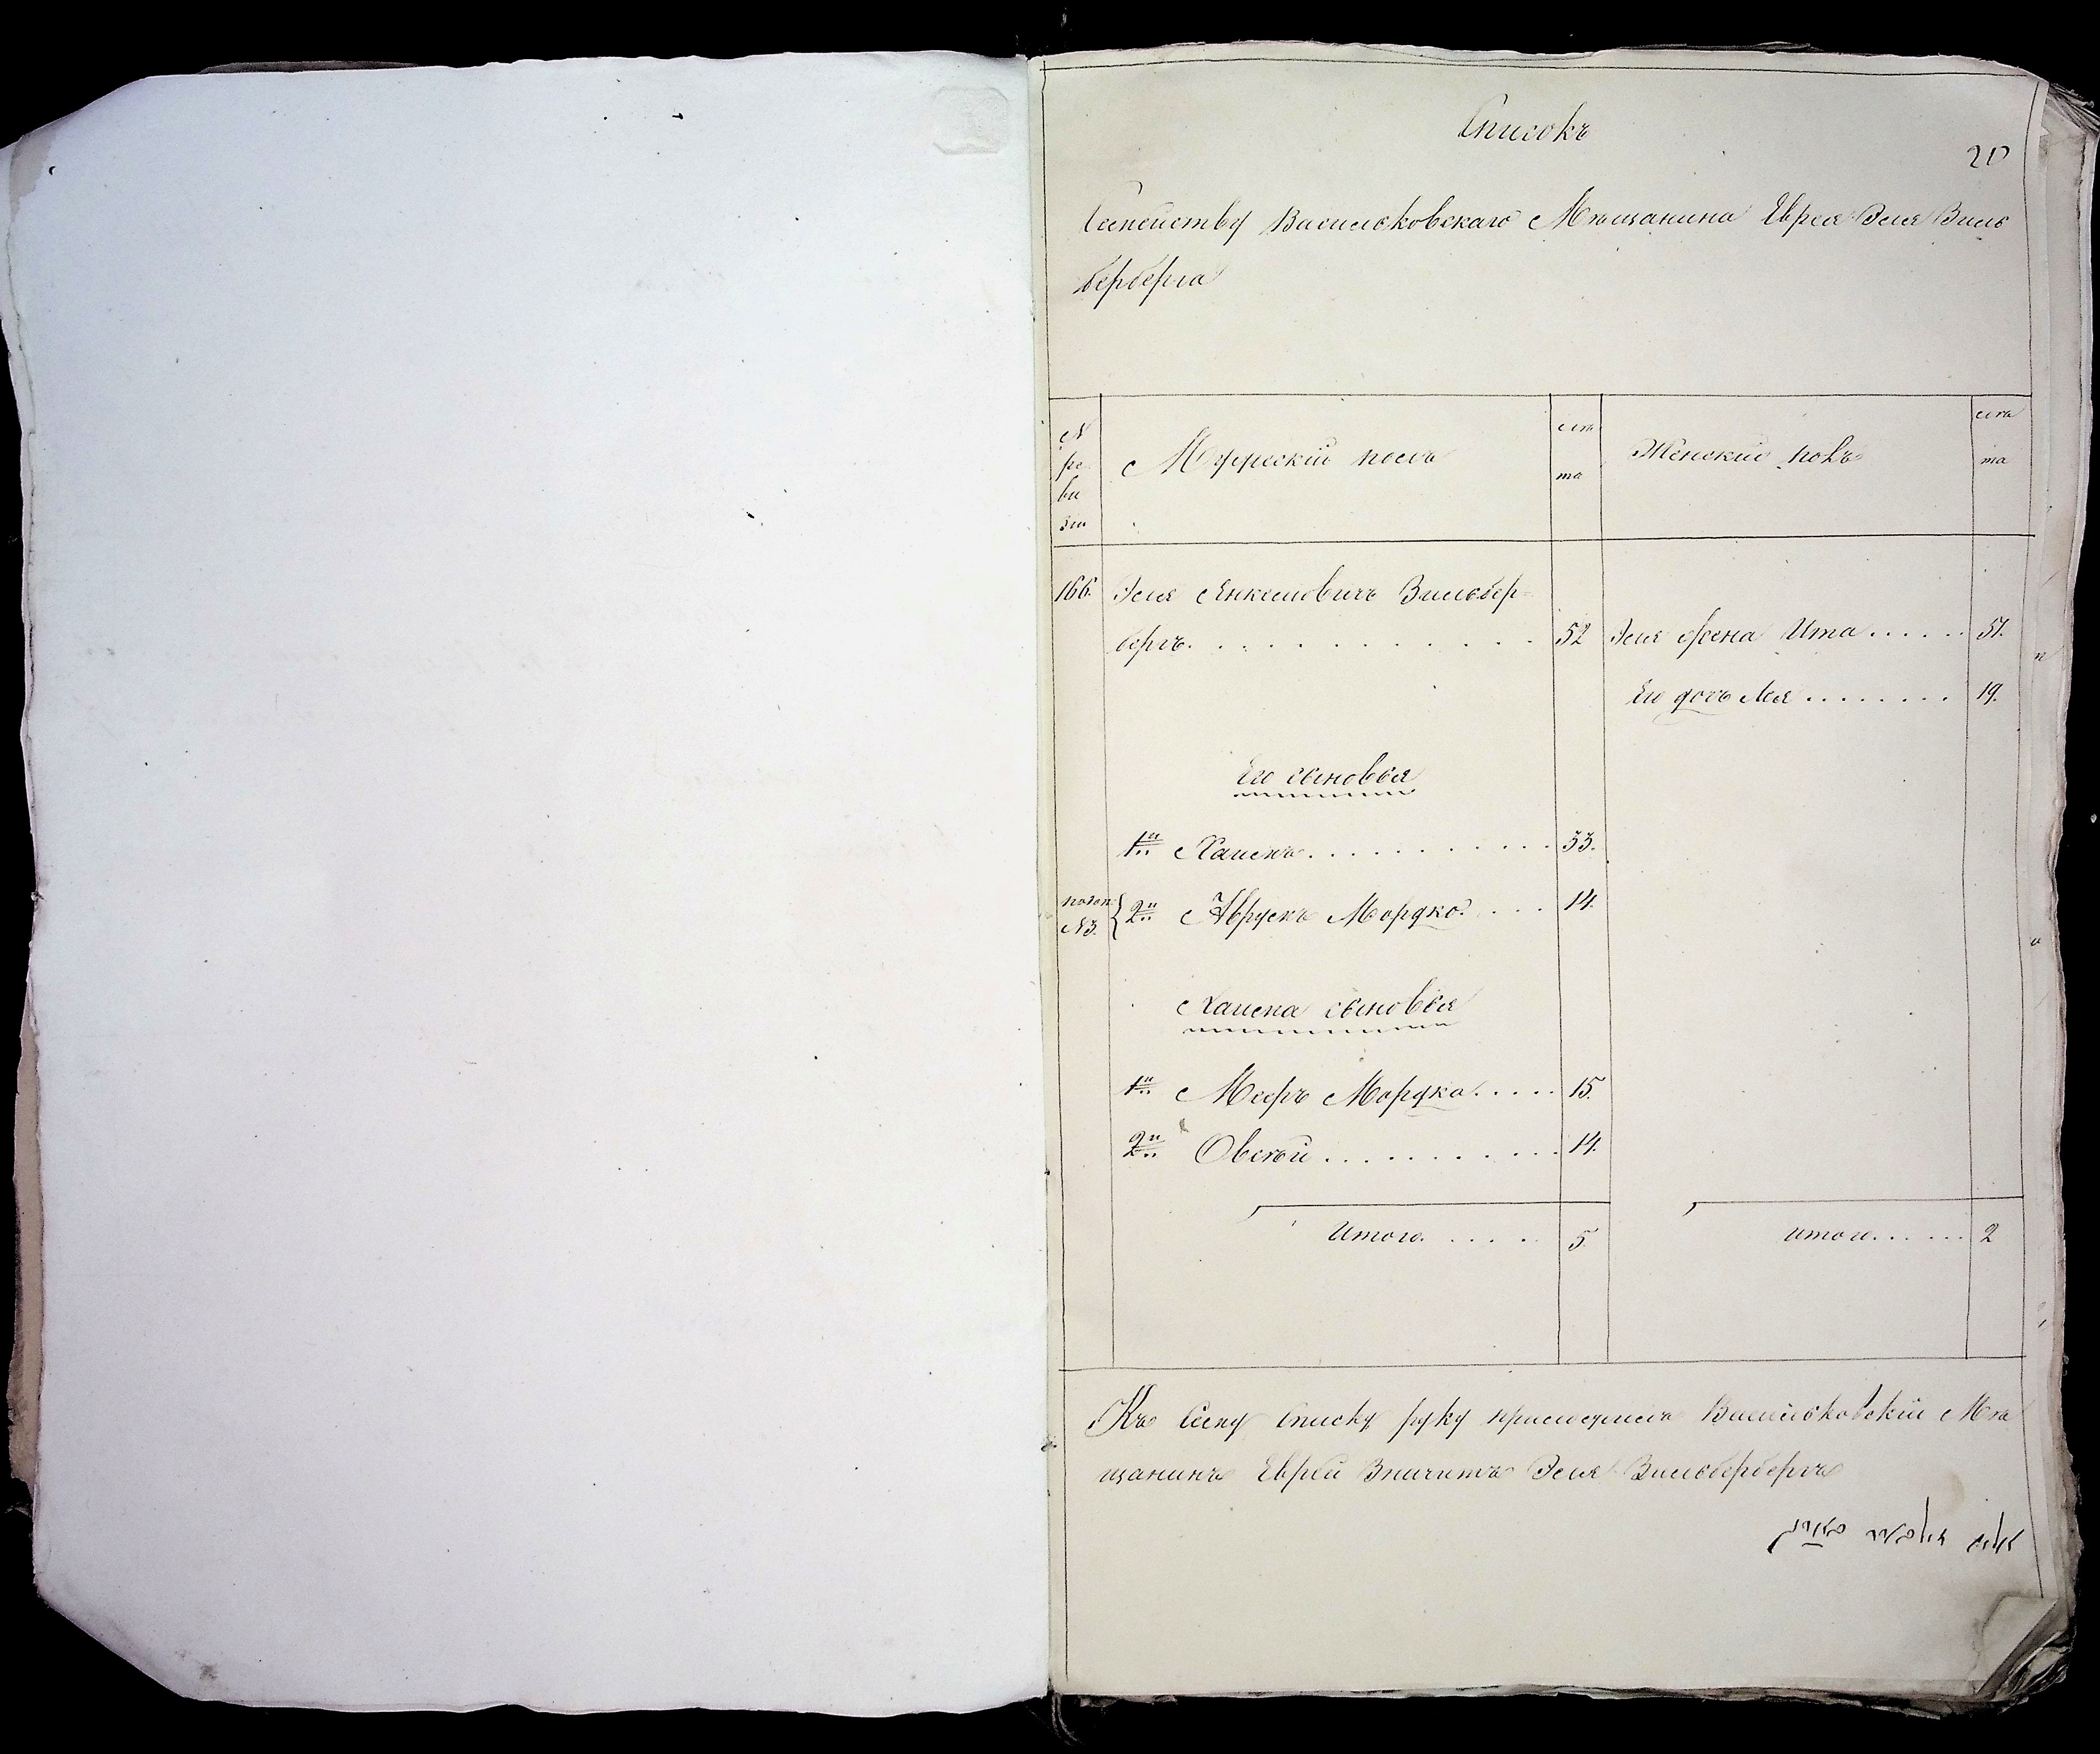 Списокъ
20
Семейству Васильковскаго Мѣщанина Еврея Эля Зиль
берберга
№ ре ви зіи
Мужескій полъ
лѣ та
Женскій полъ
лѣ та
166. Эля Янкелевичъ Зильбер-
бергъ. . . . . . . . . . . 52 Эля жена Ита . . . . . 51.
Его дочь Лея . . . . . . . . 19.
Его сыновья
1й Хаимъ . . . . . . . . . . . 33.
№3. 2й Аврумъ Мордко . . . . 14.
Хаима сыновья
1й Мееръ Мордко . . . . . 15.
2й Овсѣй . . . . . . . . . . . 14.
Итого . . . . . 5. Итого . . . . . . 2
Къ сему списку руку приложилъ Васильковскій Мѣ
щанинъ Еврей Эля Зильбербергъ